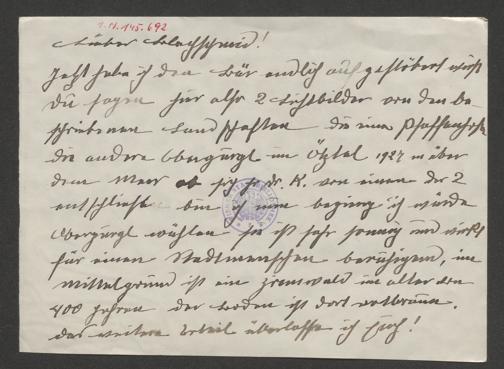 I.N. 145.692
Lieber Blechschmid!
Jetzt habe ich den Bär endlich aufgestöbert wirst
Du sagen hier also 2 Lichtbilder von den be-
schriebenen Landschaften die eine
die andere Obergurgl im Ötztal 1927 m über
dem Meer ob sich H. Dr. K. von einem der 2
entschließt bin ich neugierig ich würde
Obergurgl wählen es ist sehr sonnig und wirkt
für einen Stadtmenschen beruhigend, im
Mittelgrund ist ein Zirmwald im alter von
400 Jahren der Boden ist dort rotbraun.
das weitere Urteil überlasse ich Euch!